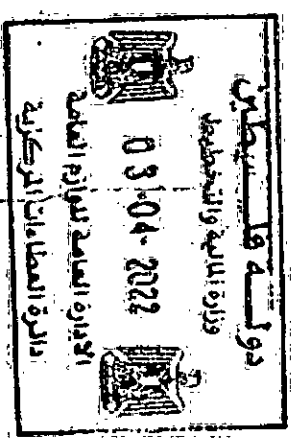 دولة فلسطين
وزارة المالية والتخطيط
03-04-2022
الادارة العامة للوازم العامة
دائرة العطاءات المركزية